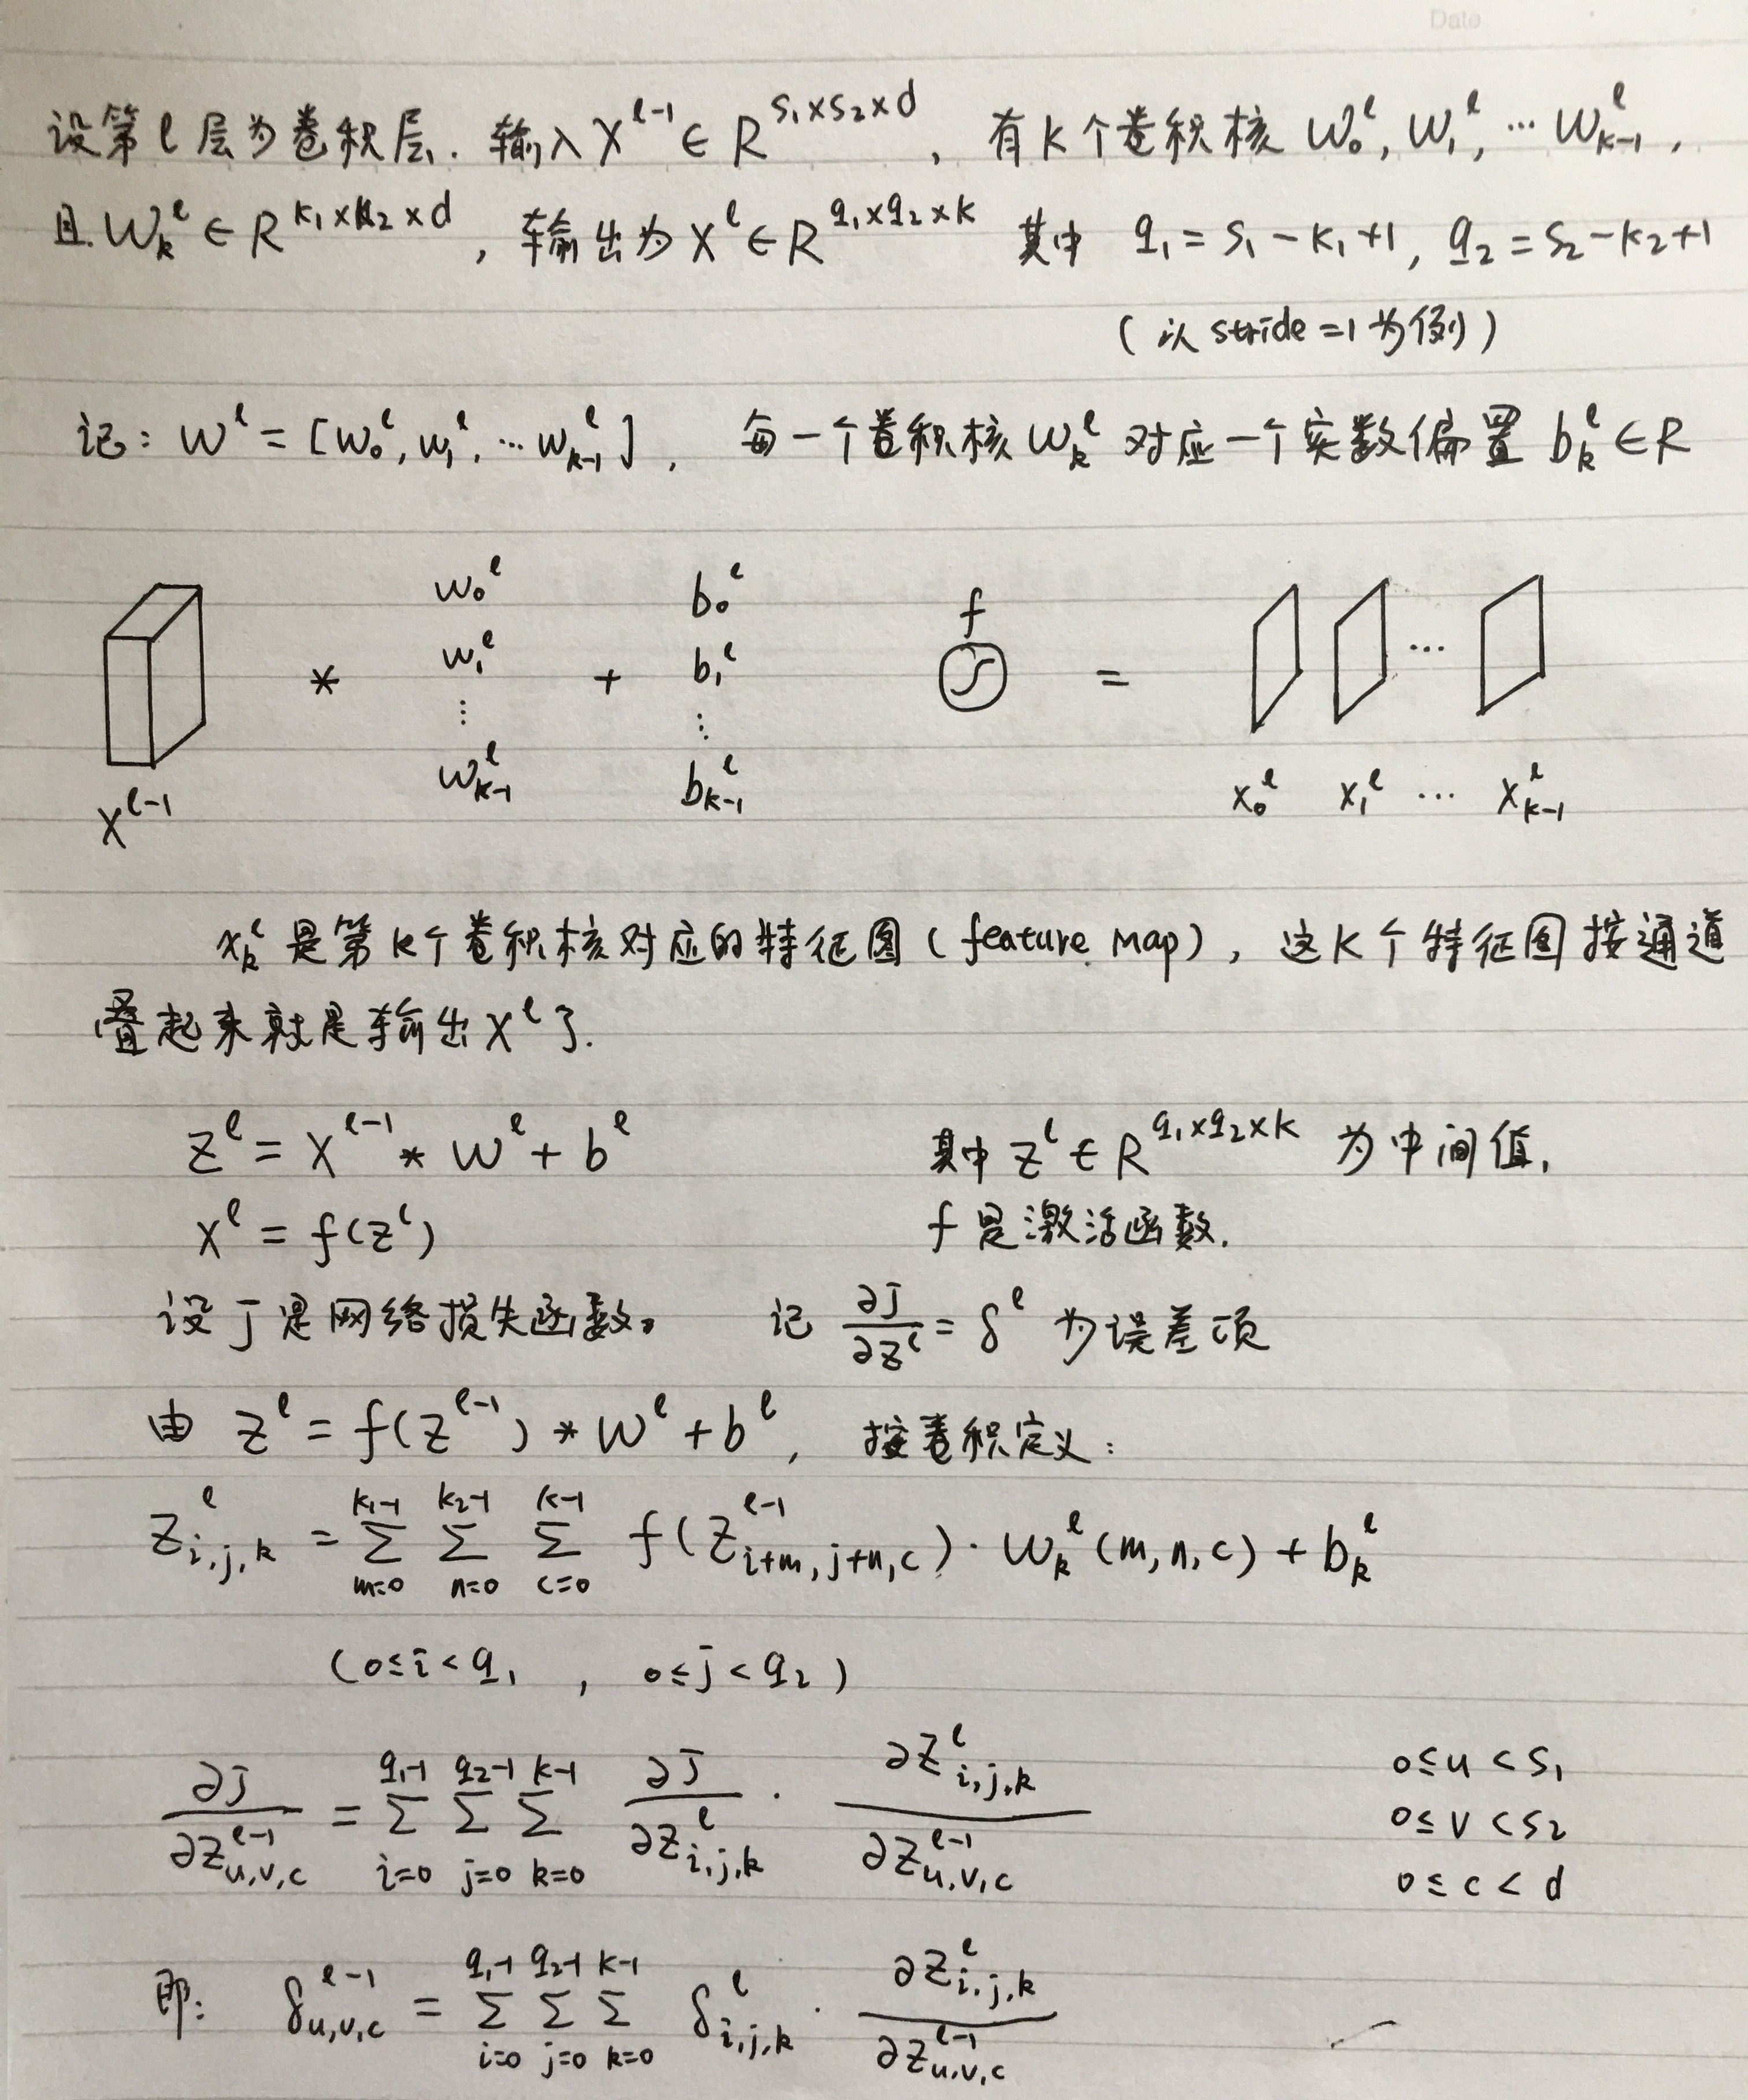 Date
设第l层为卷积层. 输入 X^{l-1} ∈ R^{s₁×s₂×d}, 有K个卷积核 W₀^l, W₁^l, … W_{K-1}^l,
且 W_k^l ∈ R^{K₁×K₂×d}, 输出为 X^l ∈ R^{q₁×q₂×K} 其中 q₁ = s₁ - K₁ + 1, q₂ = s₂ - K₂ + 1
(以 stride = 1 为例)
记: W^l = [W₀^l, W₁^l, … W_{K-1}^l], 每一个卷积核 W_k^l 对应一个实数偏置 b_k^l ∈ R
W₀^l b₀^l f
* W₁^l + b₁^l = …
⋮ ⋮
W_{K-1}^l b_{K-1}^l
X^{l-1} X₀^l X₁^l … X_{K-1}^l
X_k^l 是第k个卷积核对应的特征图 (feature map), 这K个特征图按通道
叠起来就是输出 X^l 了.
Z^l = X^{l-1} * W^l + b^l 其中 Z^l ∈ R^{q₁×q₂×K} 为中间值,
X^l = f(Z^l) f 是激活函数.
设 J 是网络损失函数。 记 ∂J/∂Z^l = δ^l 为误差项
由 Z^l = f(Z^{l-1}) * W^l + b^l, 按卷积定义:
Z_{i,j,k}^l = Σ_{m=0}^{K₁-1} Σ_{n=0}^{K₂-1} Σ_{c=0}^{K-1} f(Z_{i+m,j+n,c}^{l-1}) · W_k^l(m,n,c) + b_k^l
(0≤i<q₁, 0≤j<q₂)
∂J/∂Z_{u,v,c}^{l-1} = Σ_{i=0}^{q₁-1} Σ_{j=0}^{q₂-1} Σ_{k=0}^{K-1} ∂J/∂Z_{i,j,k}^l · ∂Z_{i,j,k}^l/∂Z_{u,v,c}^{l-1}
0≤u<s₁
0≤v<s₂
0≤c<d
即: δ_{u,v,c}^{l-1} = Σ_{i=0}^{q₁-1} Σ_{j=0}^{q₂-1} Σ_{k=0}^{K-1} δ_{i,j,k}^l · ∂Z_{i,j,k}^l/∂Z_{u,v,c}^{l-1}